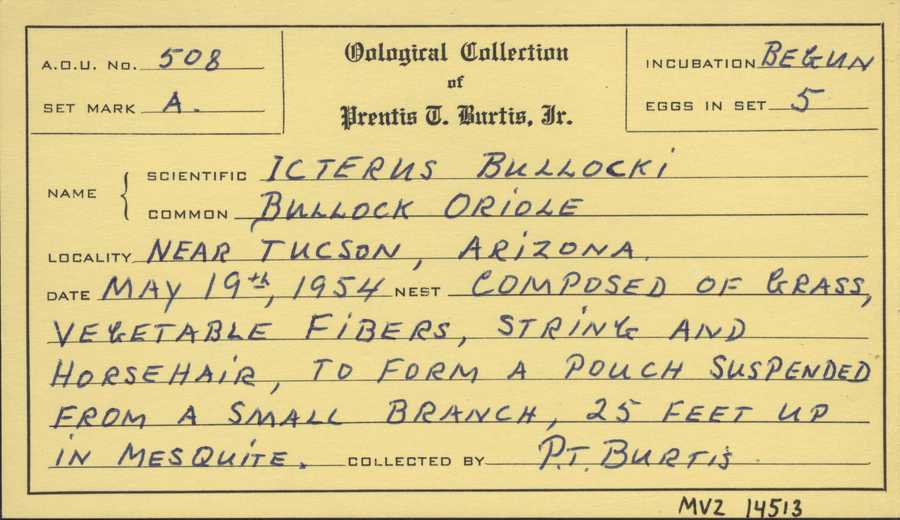 A.O.U. No. 508
SET MARK A.
Oological Collection
of
Prentis T. Burtis, Jr.
INCUBATION BEGUN
EGGS IN SET 5
NAME
SCIENTIFIC ICTERUS BULLOCKI
COMMON BULLOCK ORIOLE
LOCALITY NEAR TUCSON, ARIZONA.
DATE MAY 19th, 1954 NEST COMPOSED OF GRASS,
VEGETABLE FIBERS, STRING AND
HORSEHAIR, TO FORM A POUCH SUSPENDED
FROM A SMALL BRANCH, 25 FEET UP
IN MESQUITE. COLLECTED BY P.T. BURTIS
MVZ 14513